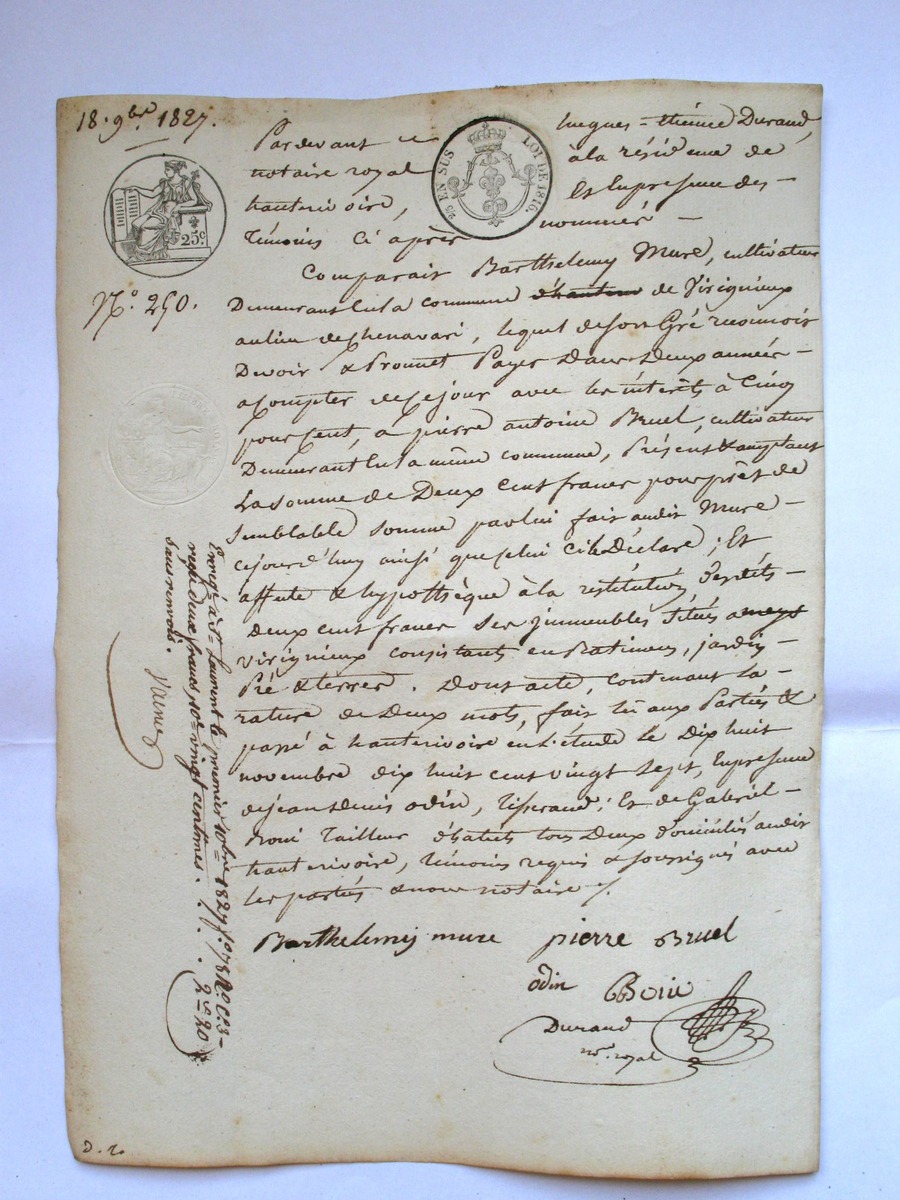 18. 9bre 1827.
Pardevant Me hugues-étienne Durand,
notaire royal à la résidence de
hauterivoire, Et En presence des
témoins ci après nommés
25 EN SUS
LOI DE 1816.
25c
No. 250.
Comparait Barthelemy Mure, cultivateur
Demeurant En la commune de Virignieux
au lieu de , lequel de son Gré reconnoit
Devoir & Promet Payer Dans Deux années
a Compter de ce jour avec les intérêts à Cinq
pour Cent, a pierre antoine Bruel, cultivateur
Demeurant En la même commune, Présent & acceptant
La somme de Deux Cent francs pour prêt de
Semblable somme par lui fait audit Mure
cejourd'huy ainsi que celui ci le Déclare ; Et
affecte & hypothèque à la restitution desdits
Deux cent francs ses immeubles situés a
virignieux consistants en Batiments, jardin,
Pré & terres. Dont acte, contenant la
rature de Deux mots, fait lu aux Parties &
passé à hauterivoire en l'étude le Dix huit
novembre dix huit cent vingt sept, En presence
de jean Denis odin, tisserand ; Et de Gabriel
tailleur d'habits tous Deux domiciliés audit
hauterivoire, témoins requis & soussignés avec
les parties & nous notaire /.
Barthelemy mure pierre Bruel
odin
Durand
nre royal
Enregé à St Laurent le premier 10bre 1827 fo 78 Ro C. 3
reçu deux francs 10e vingt centimes.
Sans renvois.
2f 20c
D. r.